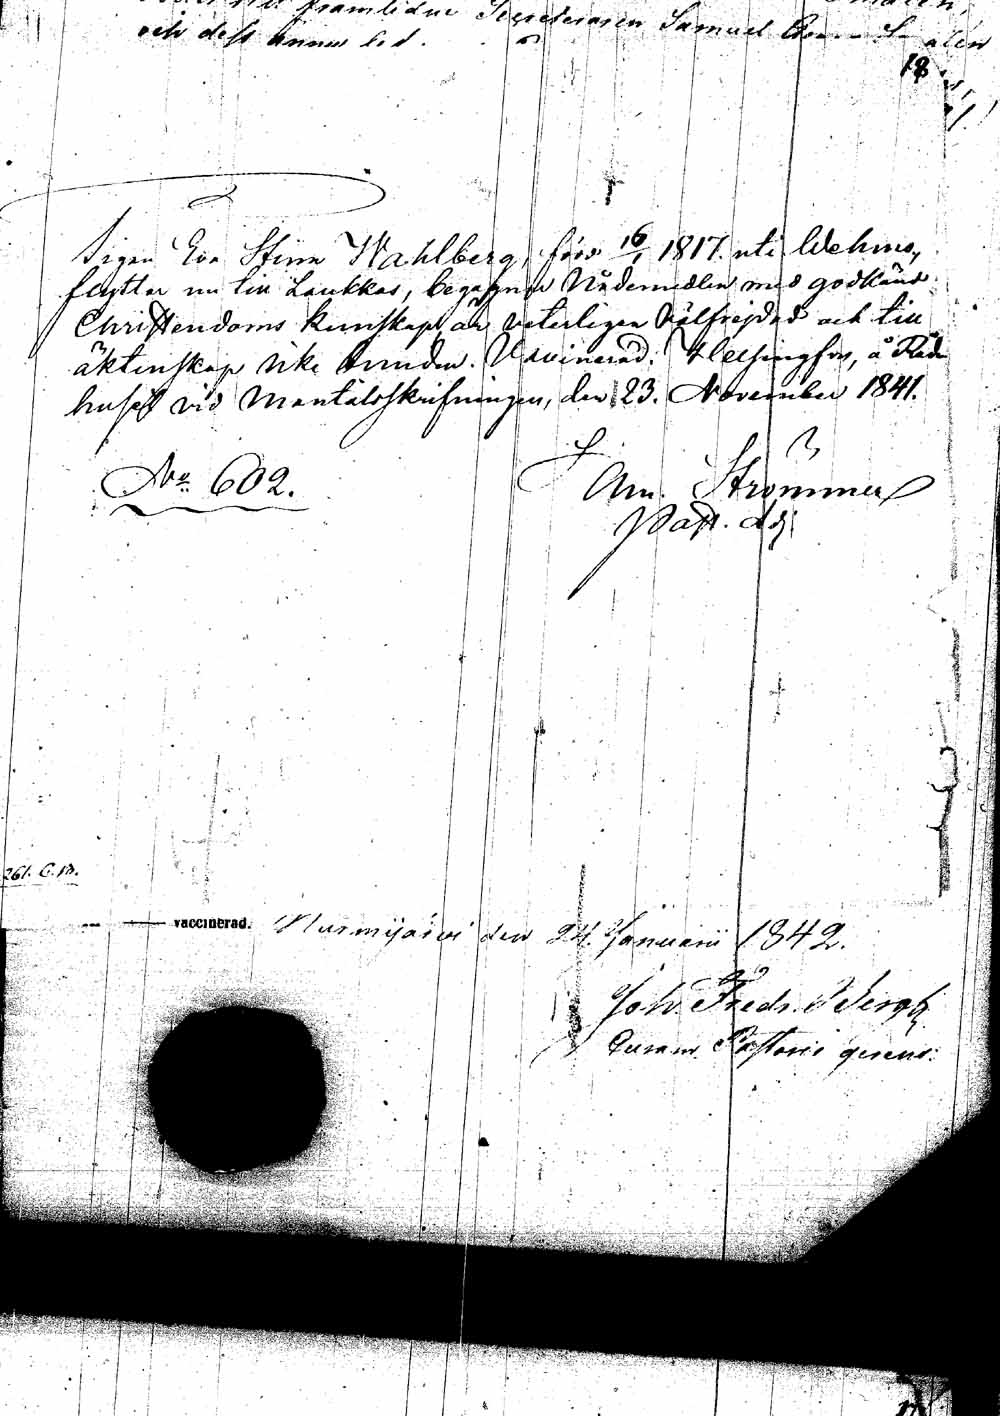 framlidne Secreteraren Samuel
och dess
18
Pigan Eva Stina Wahlberg, född 16/1 1817. uti Wehmo,
flyttar nu till Laukkas, begagnar Nådemedlen med godkänd
Christendoms kunskap, är veterligen välfrejdad och till
äktenskap icke bunden. Vaccinerad. Helsingfors, å Råd
huset vid Mantalsskrifningen, den 23. November 1841.
No 602.
Am. Strömmer
Past. Adj.
261. C.
vaccinerad. Nurmijärvi den 24. Januarii 1842.
Joh. Fredr. Bergh
Curam Pastoris gerens.